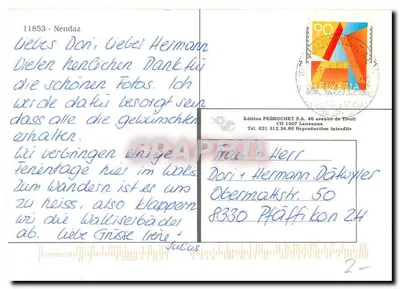 11853 - Nendaz
Liebes Dori, lieber Hermann
Vielen herzlichen Dank für
die schönen Fotos. Ich
werde dafür besorgt sein
dass alle die gewünschten
erhalten.
Wir verbringen einige
Ferientage hier im Wallis
Zum Wandern ist es uns
zu heiss, also klappern
wir die Walliserbäder
ab. Liebe Grüsse Irene +
Julius
90
A
HELVETIA
Edition PERROCHET S.A. 46 avenue de Tivoli
CH 1007 Lausanne
Tél. 021 312.34.00 Reproduction interdite
Frau + Herr
Dori + Hermann Dätwyler
Obermattstr. 50
8330 Pfäffikon ZH
2.-